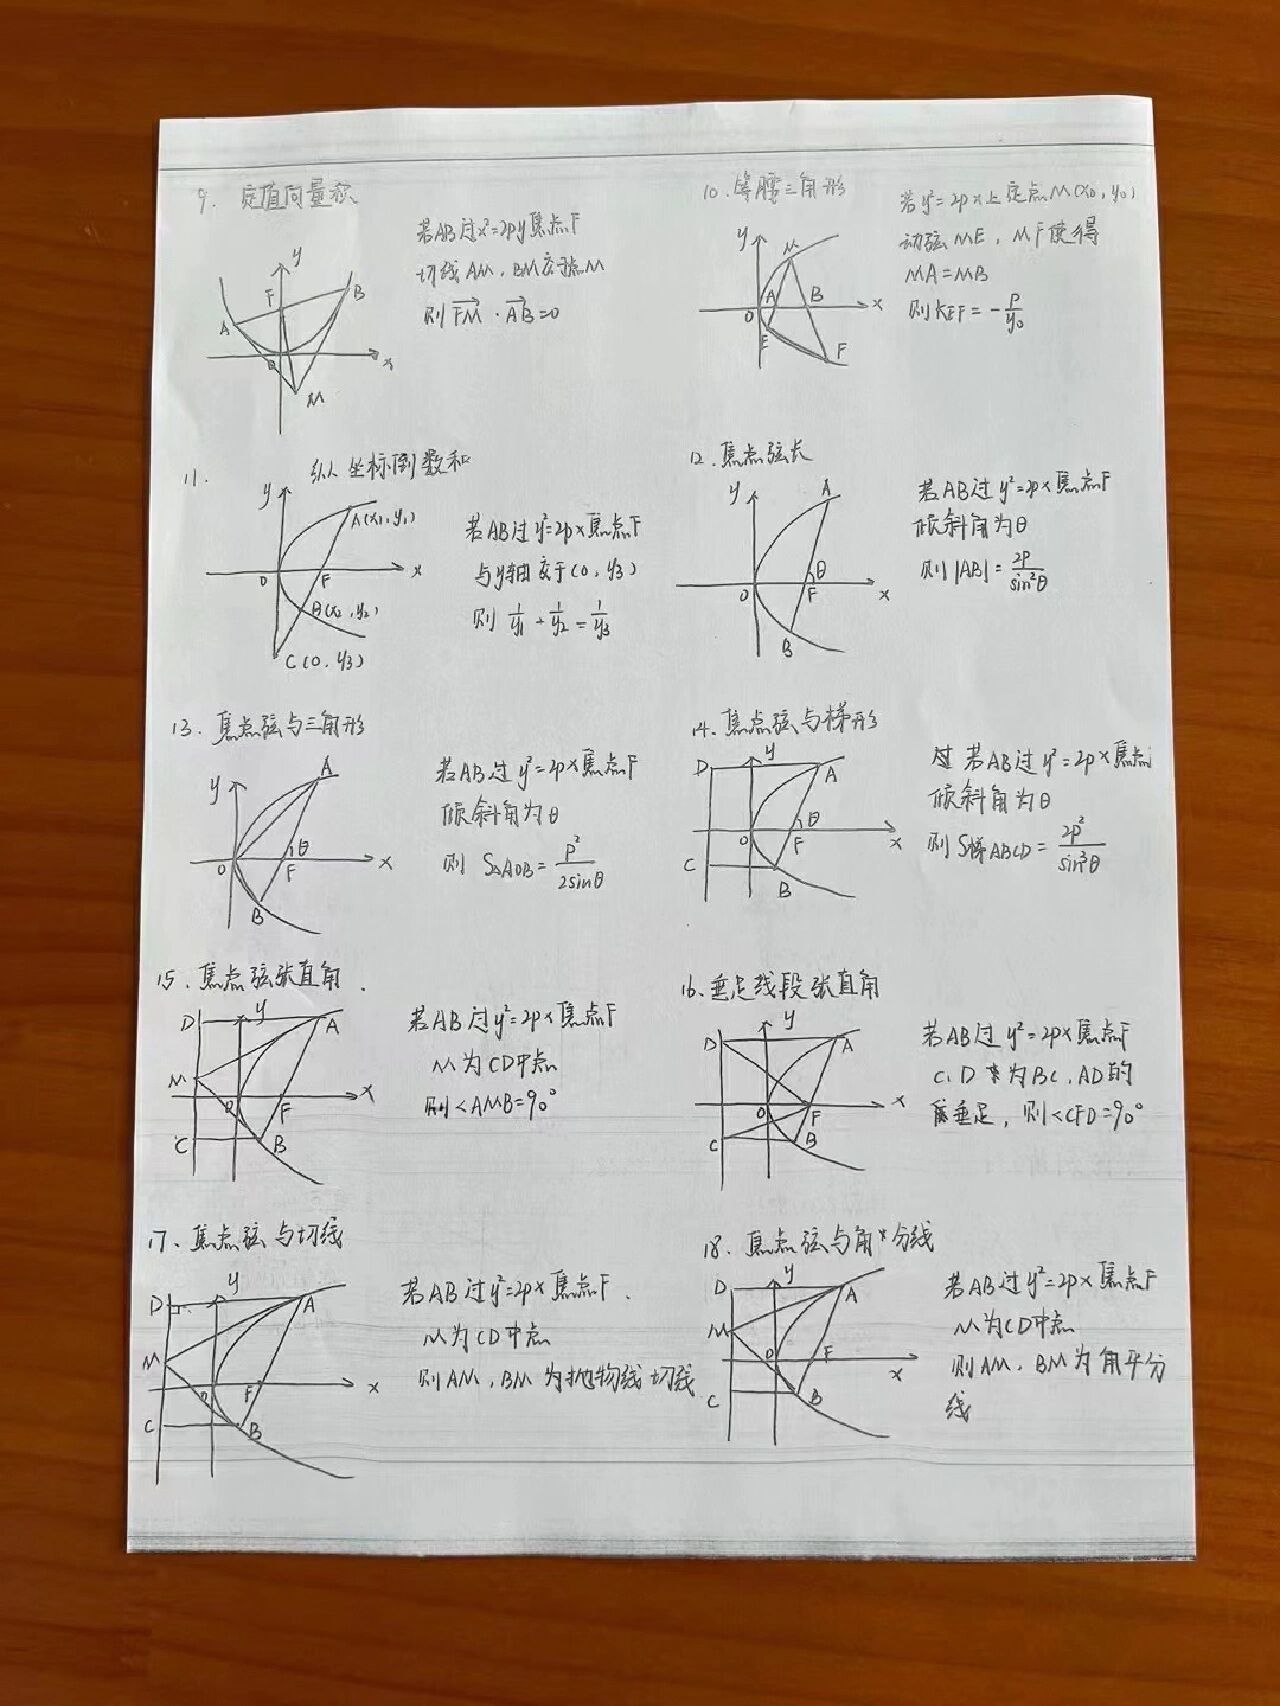 9. 定值向量积
若AB过x²=2py焦点F
切线AM, BM交于点M
则 FM · AB=0
y
F
B
A
O
x
M
10. 等腰三角形
若y²=2px上定点M(x₀, y₀)
动弦ME, MF使得
MA=MB
则KEF = -p/y₀
y
M
A
B
x
O
E
F
11. 纵坐标倒数和
若AB过y²=2px焦点F
与y轴交于(0, y₃)
则 1/y₁ + 1/y₂ = 1/y₃
y
A(x₁, y₁)
O
F
x
B(x₂, y₂)
C(0, y₃)
12. 焦点弦长
若AB过y²=2px焦点F
倾斜角为θ
则|AB| = 2p/sin²θ
y
A
θ
O
F
x
B
13. 焦点弦与三角形
若AB过y²=2px焦点F
倾斜角为θ
则 S△AOB = p²/2sinθ
y
A
θ
O
F
x
B
14. 焦点弦与梯形
过 若AB过y²=2px焦点
倾斜角为θ
则S梯ABCD = 2p²/sin³θ
y
D
A
θ
O
F
x
C
B
15. 焦点弦张直角.
若AB过y²=2px焦点F
M为CD中点
则<AMB=90°
D
y
A
M
O
F
x
C
B
16. 垂足线段张直角
若AB过y²=2px焦点F
C, D 为BC, AD的
垂足, 则<CFD=90°
y
D
A
O
F
x
C
B
17. 焦点弦与切线
若AB过y²=2px焦点F.
M为CD中点
则AM, BM为抛物线切线
y
D
A
M
O
F
x
C
B
18. 焦点弦与角分线
若AB过y²=2px焦点F
M为CD中点
则AM, BM为角平分
线
y
D
A
M
O
F
x
C
B